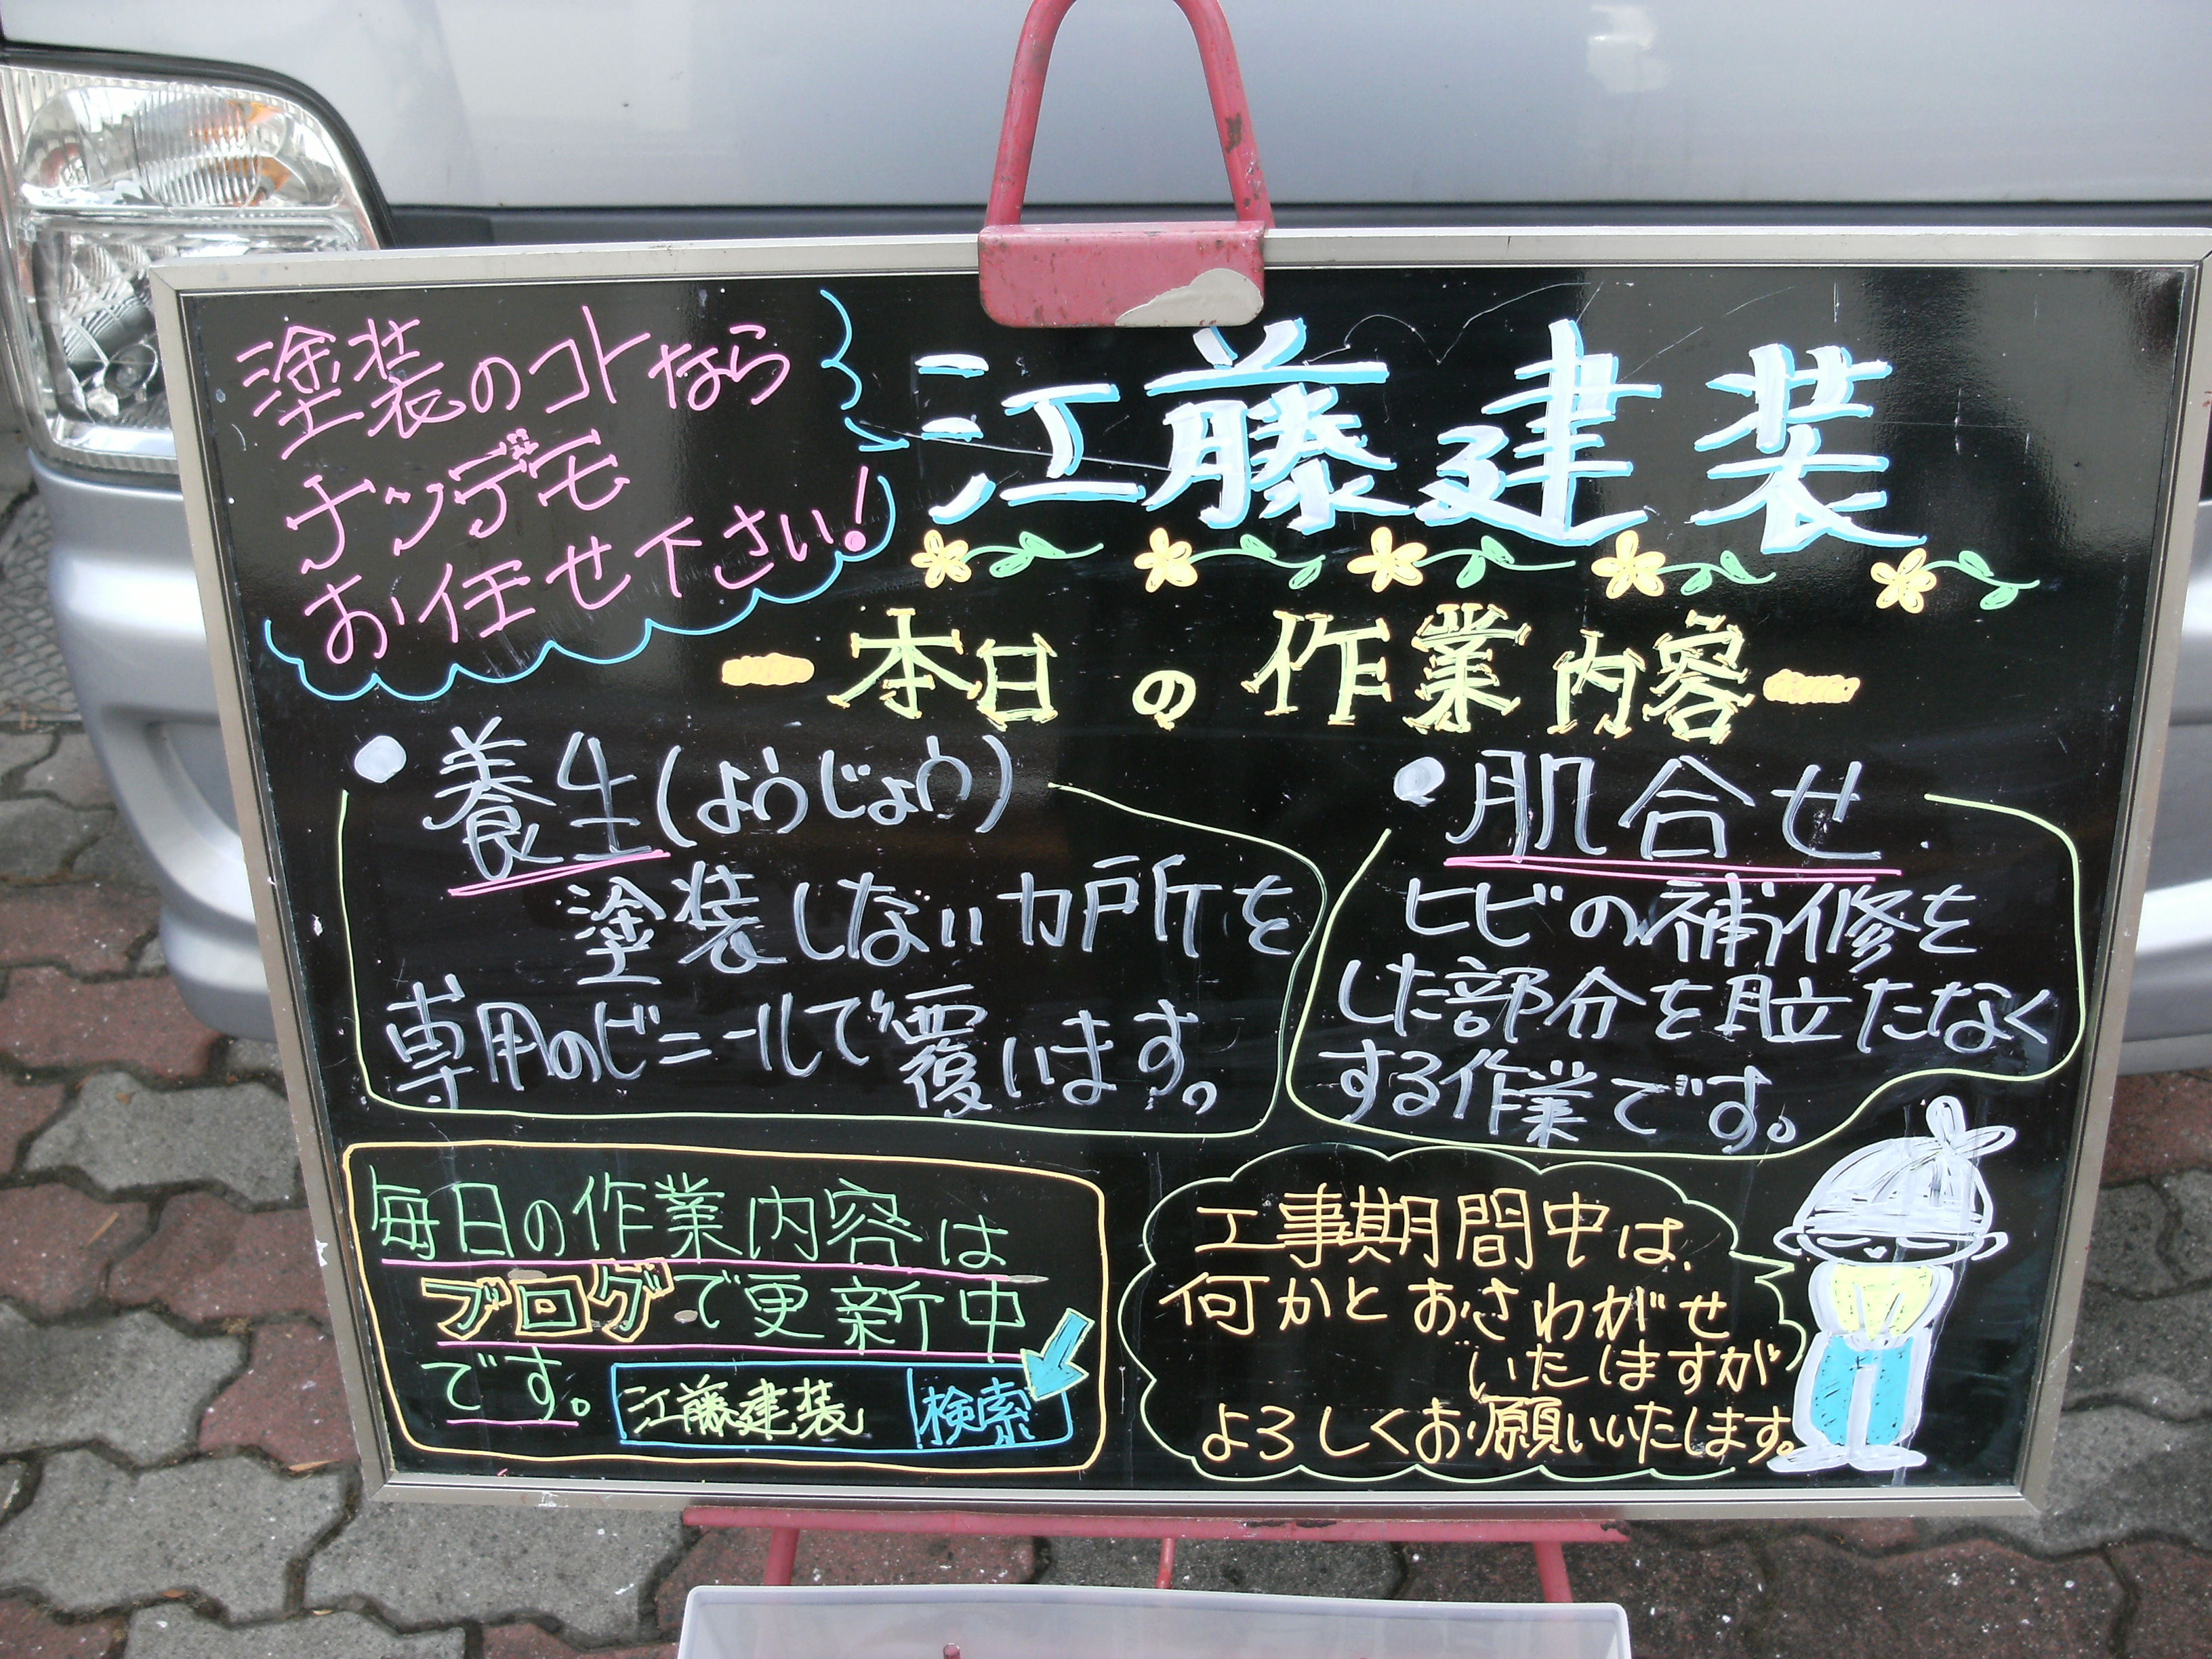 塗装のコトなら
ナンデモ
お任せ下さい!
江藤建装
本日の作業内容
●養生(ようじょう)
塗装しないカ戸所を
専用のビニールで覆います。
●肌合せ
ヒビの補修を
した部分を目立たなく
する作業です。
毎日の作業内容は
ブログで更新中
です。
江藤建装 検索
工事期間中は、
何かとおさわがせ
いたしますが
よろしくお願いいたします。